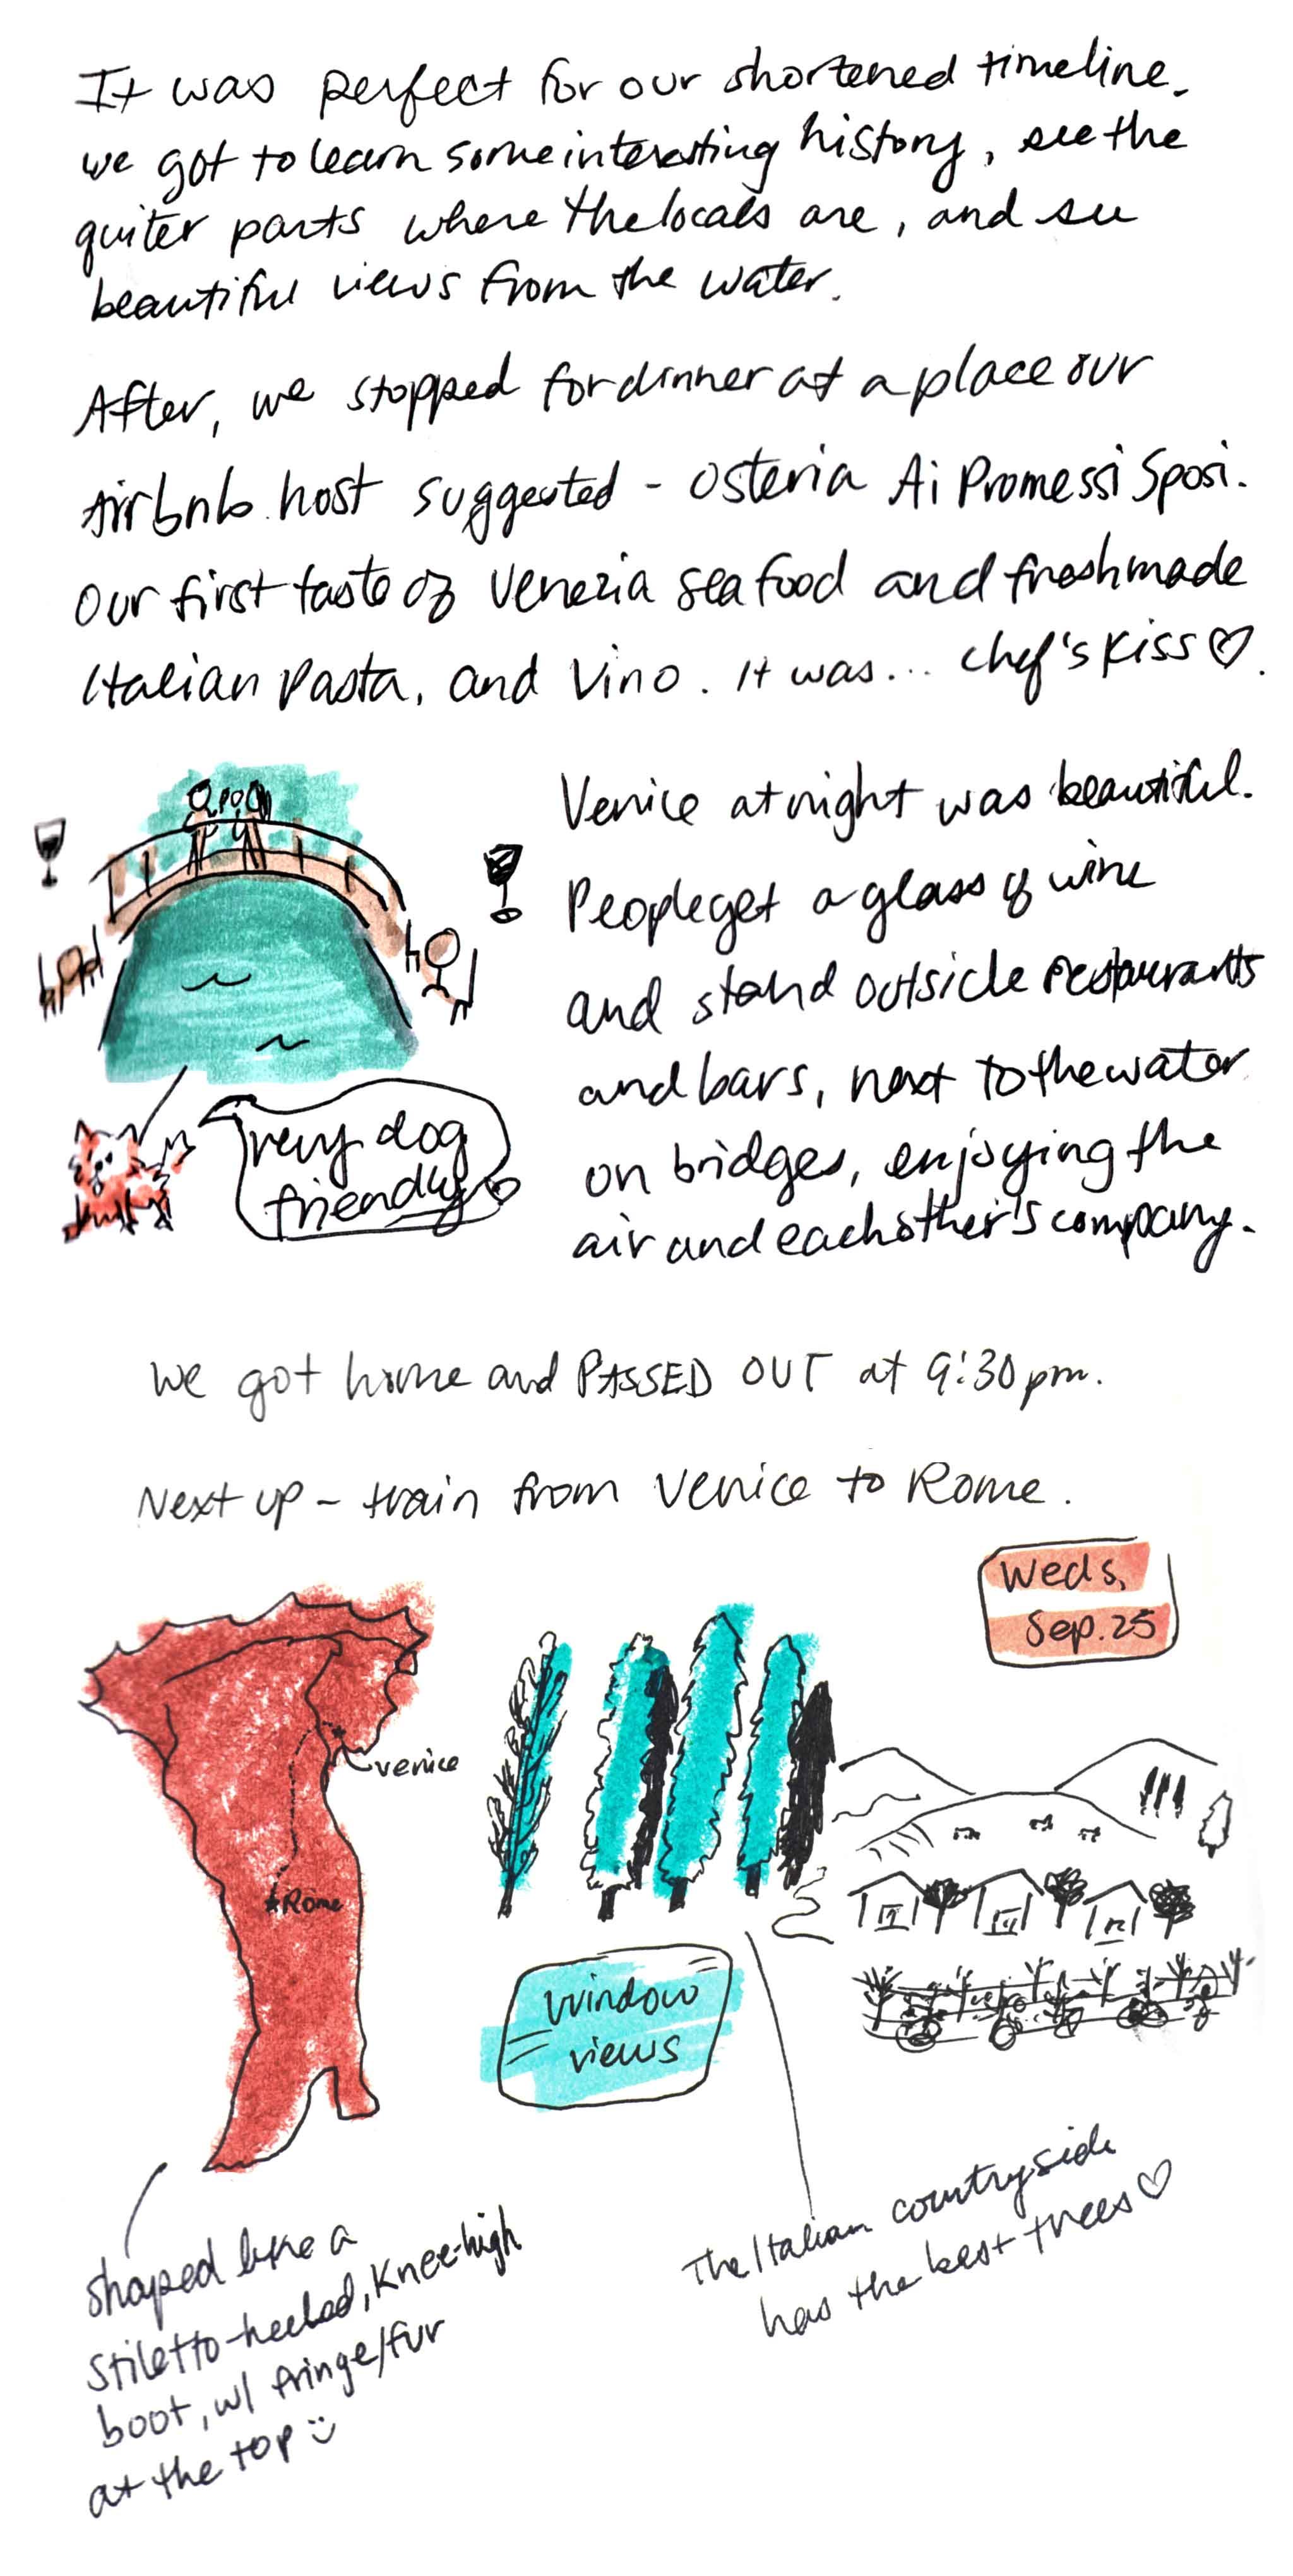 It was perfect for our shortened timeline.
we got to learn some interesting history, see the
quiter parts where the locals are, and see
beautiful views from the water.
After, we stopped for dinner at a place our
Airbnb host suggested - Osteria Ai Promessi Sposi.
Our first taste of Venezia seafood and fresh made
Italian Pasta, and Vino. It was... chef's kiss♡.
Venice at night was beautiful.
People get a glass of wine
and stand outside restaurants
and bars, next to the water
on bridges, enjoying the
air and each other's company.
very dog
friendly
We got home and PASSED OUT at 9:30pm.
Next up - train from Venice to Rome.
Weds,
Sep. 25
venice
Rome
window
views
The Italian countryside
has the best trees♡
shaped like a
stiletto-heeled, knee-high
boot, w/ fringe/fur
at the top :)